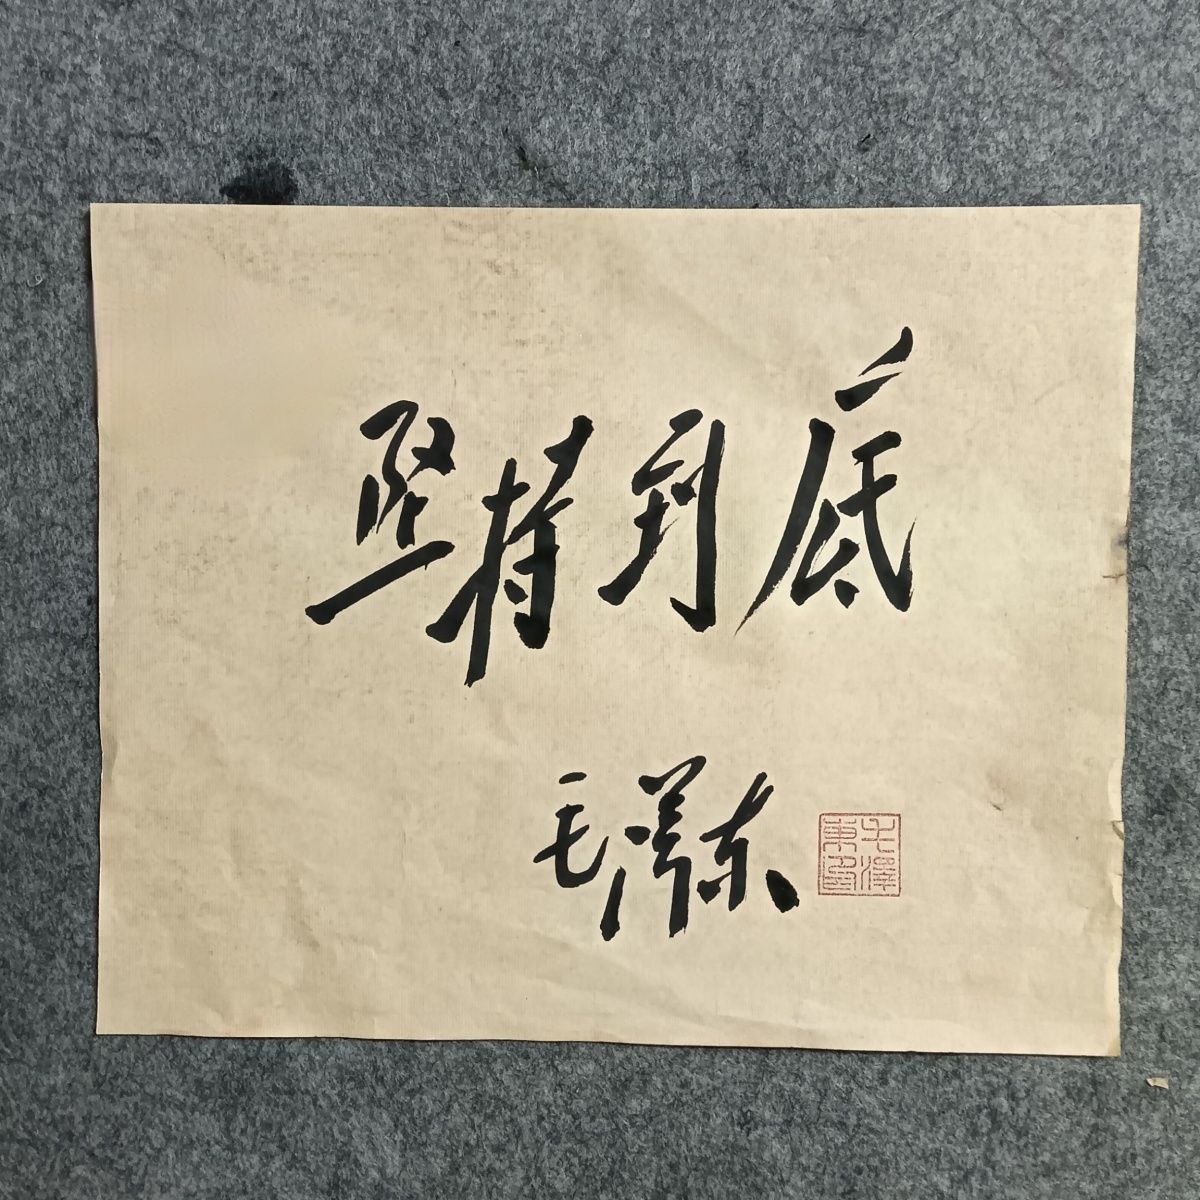 坚持到底
毛泽东
毛澤東印